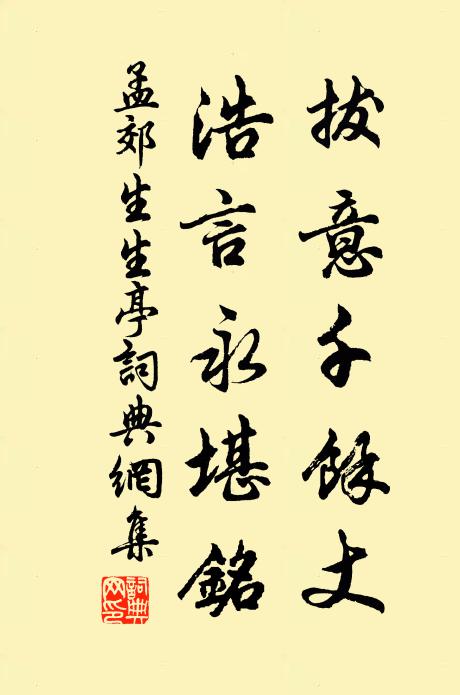 拔意千餘丈
浩言永堪銘
孟郊生生亭詞典網集
詞典網印